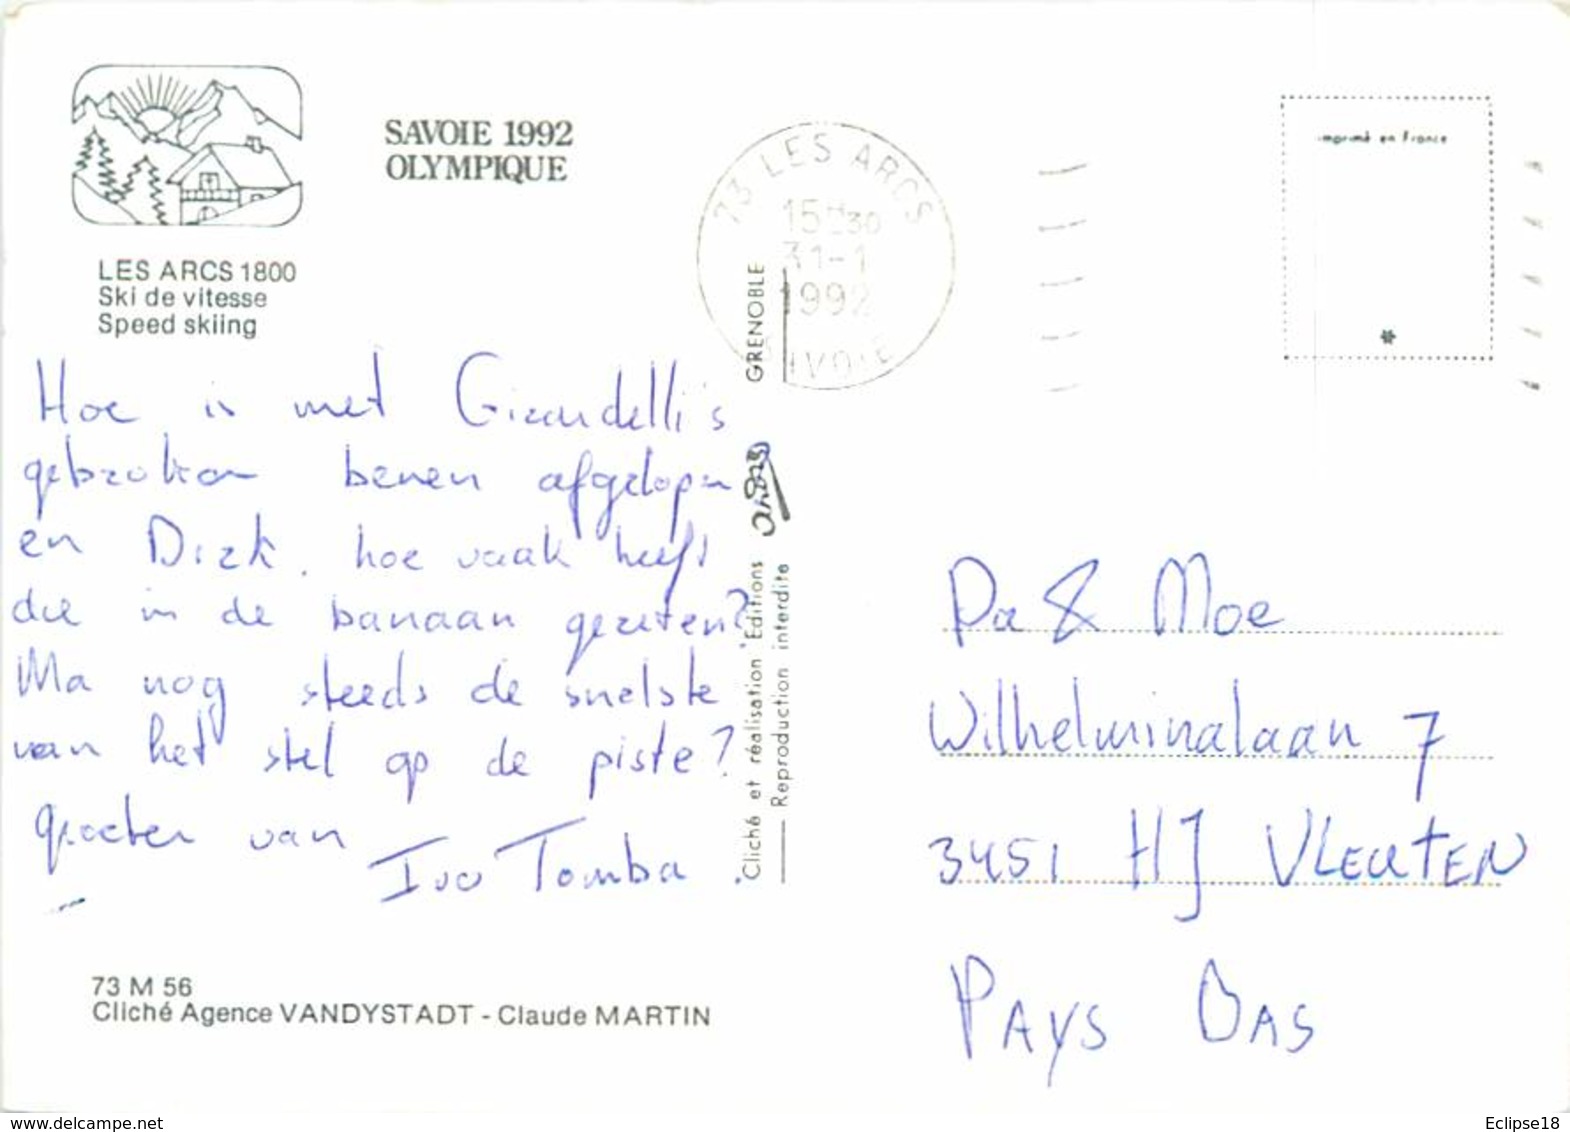 SAVOIE 1992
OLYMPIQUE
LES ARCS 1800
Ski de vitesse
Speed skiing
73 LES ARCS
15H30
31-1
1992
SAVOIE
imprimé en France
Hoe is met Girardelli's
gebroken benen afgelopen
en Dirk, hoe vaak heeft
die in de banaan gezeten?
Ma nog steeds de snelste
van het stel op de piste?
groeten van
Ivo Tomba
GRENOBLE
Cliché et réalisation Editions
Reproduction interdite
Pa & Moe
Wilhelminalaan 7
3451 HJ VLEUTEN
PAYS BAS
73 M 56
Cliché Agence VANDYSTADT - Claude MARTIN
www.delcampe.net
Eclipse18